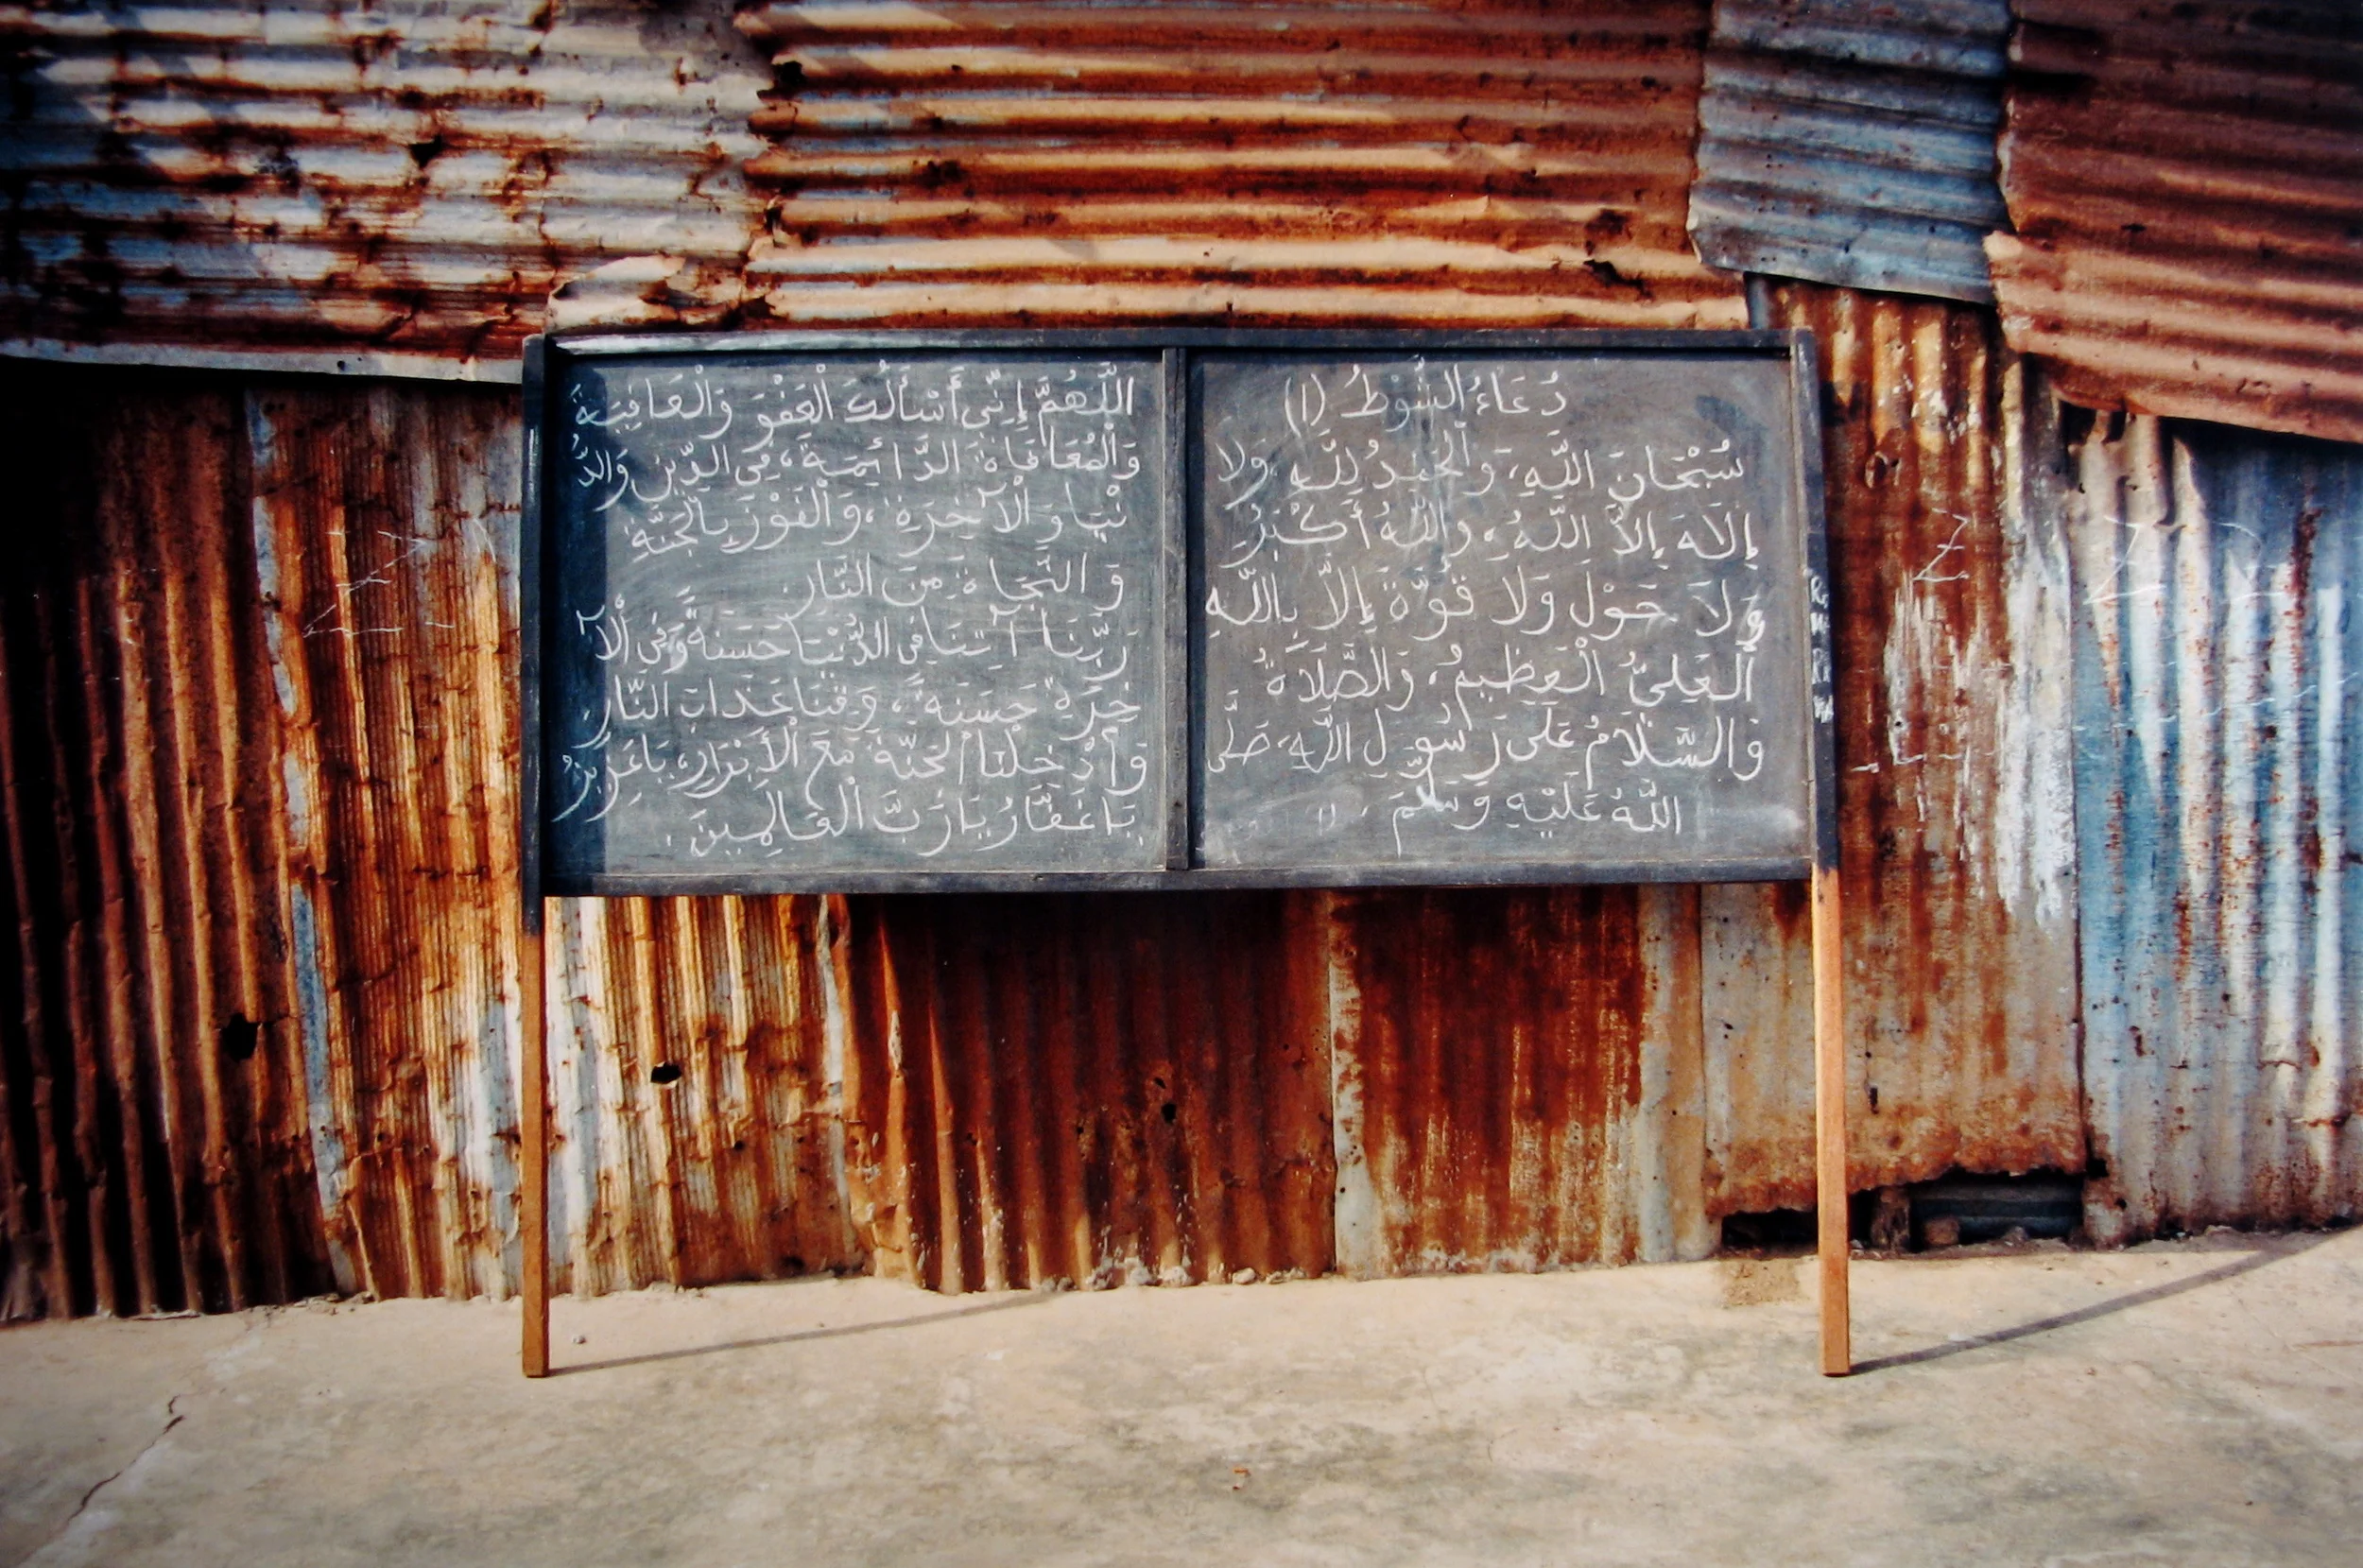 دُعَاءُ الشَّوْطُ (١)
سُبْحَانَ اللَّهِ، وَالْحَمْدُ لِلَّهِ وَلَا
إِلَاهَ إِلَّا اللَّهُ، وَاللَّهُ أَكْبَرُ
وَلَا حَوْلَ وَلَا قُوَّةَ إِلَّا بِاللَّهِ
الْعَلِيُّ الْعَظِيمُ، وَالصَّلَاةُ
وَالسَّلَامُ عَلَى رَسُولِ اللَّهِ، صَلَّى
اللَّهُ عَلَيْهِ وَسَلَّمَ.
اللَّهُمَّ إِنِّي أَسْأَلُكَ الْعَفْوَ وَالْعَافِيَةَ
وَالْمُعَافَاةَ الدَّائِمَةَ، فِي الدِّينِ وَالدُّ
نْيَا وَالْآخِرَةِ، وَالْفَوْزَ بِالْجَنَّةِ
وَالنَّجَاةَ مِنَ النَّارِ
رَبَّنَا آتِنَا فِي الدُّنْيَا حَسَنَةً وَفِي الْآ
خِرَةِ حَسَنَةً، وَقِنَا عَذَابَ النَّارِ
وَأَدْخِلْنَا الْجَنَّةَ مَعَ الْأَبْرَارِ، يَا عَزِيزُ
يَا غَفَّارُ يَا رَبَّ الْعَالَمِينَ.